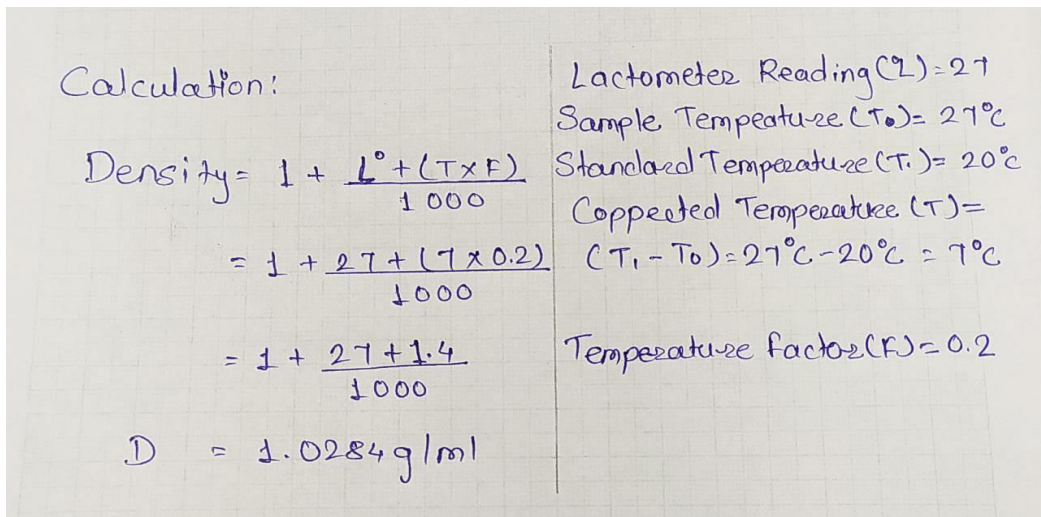 Calculation:
Density = 1 + L° + (T x F)
1000
= 1 + 27 + (7 x 0.2)
1000
= 1 + 27 + 1.4
1000
D = 1.0284 g/ml
Lactometer Reading (L) = 27
Sample Tempeature (T₀) = 27°C
Standard Temperature (T₁) = 20°C
Coppected Temperature (T) =
(T₁ - T₀) = 27°C - 20°C = 7°C
Temperature factor (F) = 0.2